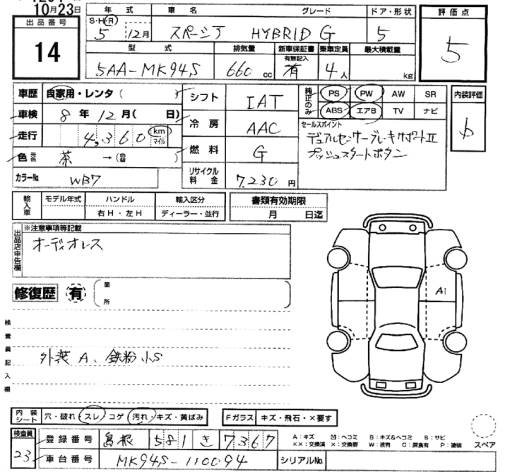 10月23日
出品番号
14
年式 車名 グレード ドア・形状
S・H・R 5年 12月 スペーシア HYBRID G 5
評価点
5
型式 排気量 新車保証書 有無記入 乗車定員 最大積載量
5AA-MK94S 660cc 有 4人 kg
車歴 自家用・レンタ( )
車検 8年 12月( 日)
走行 4,360 km マイル
色 茶→( )
カラーNo. WB7
シフト IAT
冷房 AAC
燃料 G
リサイクル料金 7,230円
純正のみ PS PW AW SR
ABS エアB TV ナビ
内装評価
b
セールスポイント
デュアルセンサーブレーキサポートII
プッシュスタートボタン
輸入車 モデル年式 ハンドル 輸入区分 書類有効期限
年 右H・左H ディーラー・並行 月 日迄
出品店申告欄
※注意事項等記載
オーディオレス
修復歴 有 箇所
A1
検査員記入欄
外装A、鉄粉小S
内装シート 穴・破れ スレ コゲ 汚れ キズ・黄ばみ Fガラス キズ・飛石・×要す
検査員
23
登録番号 島根 581 き 7367
車台番号 MK94S-110094 シリアルNo.
A:キズ U:ヘコミ B:キズ&ヘコミ S:サビ
XX:交換済 X:交換要 W:波有 C:腐食有 P:塗装
スペア